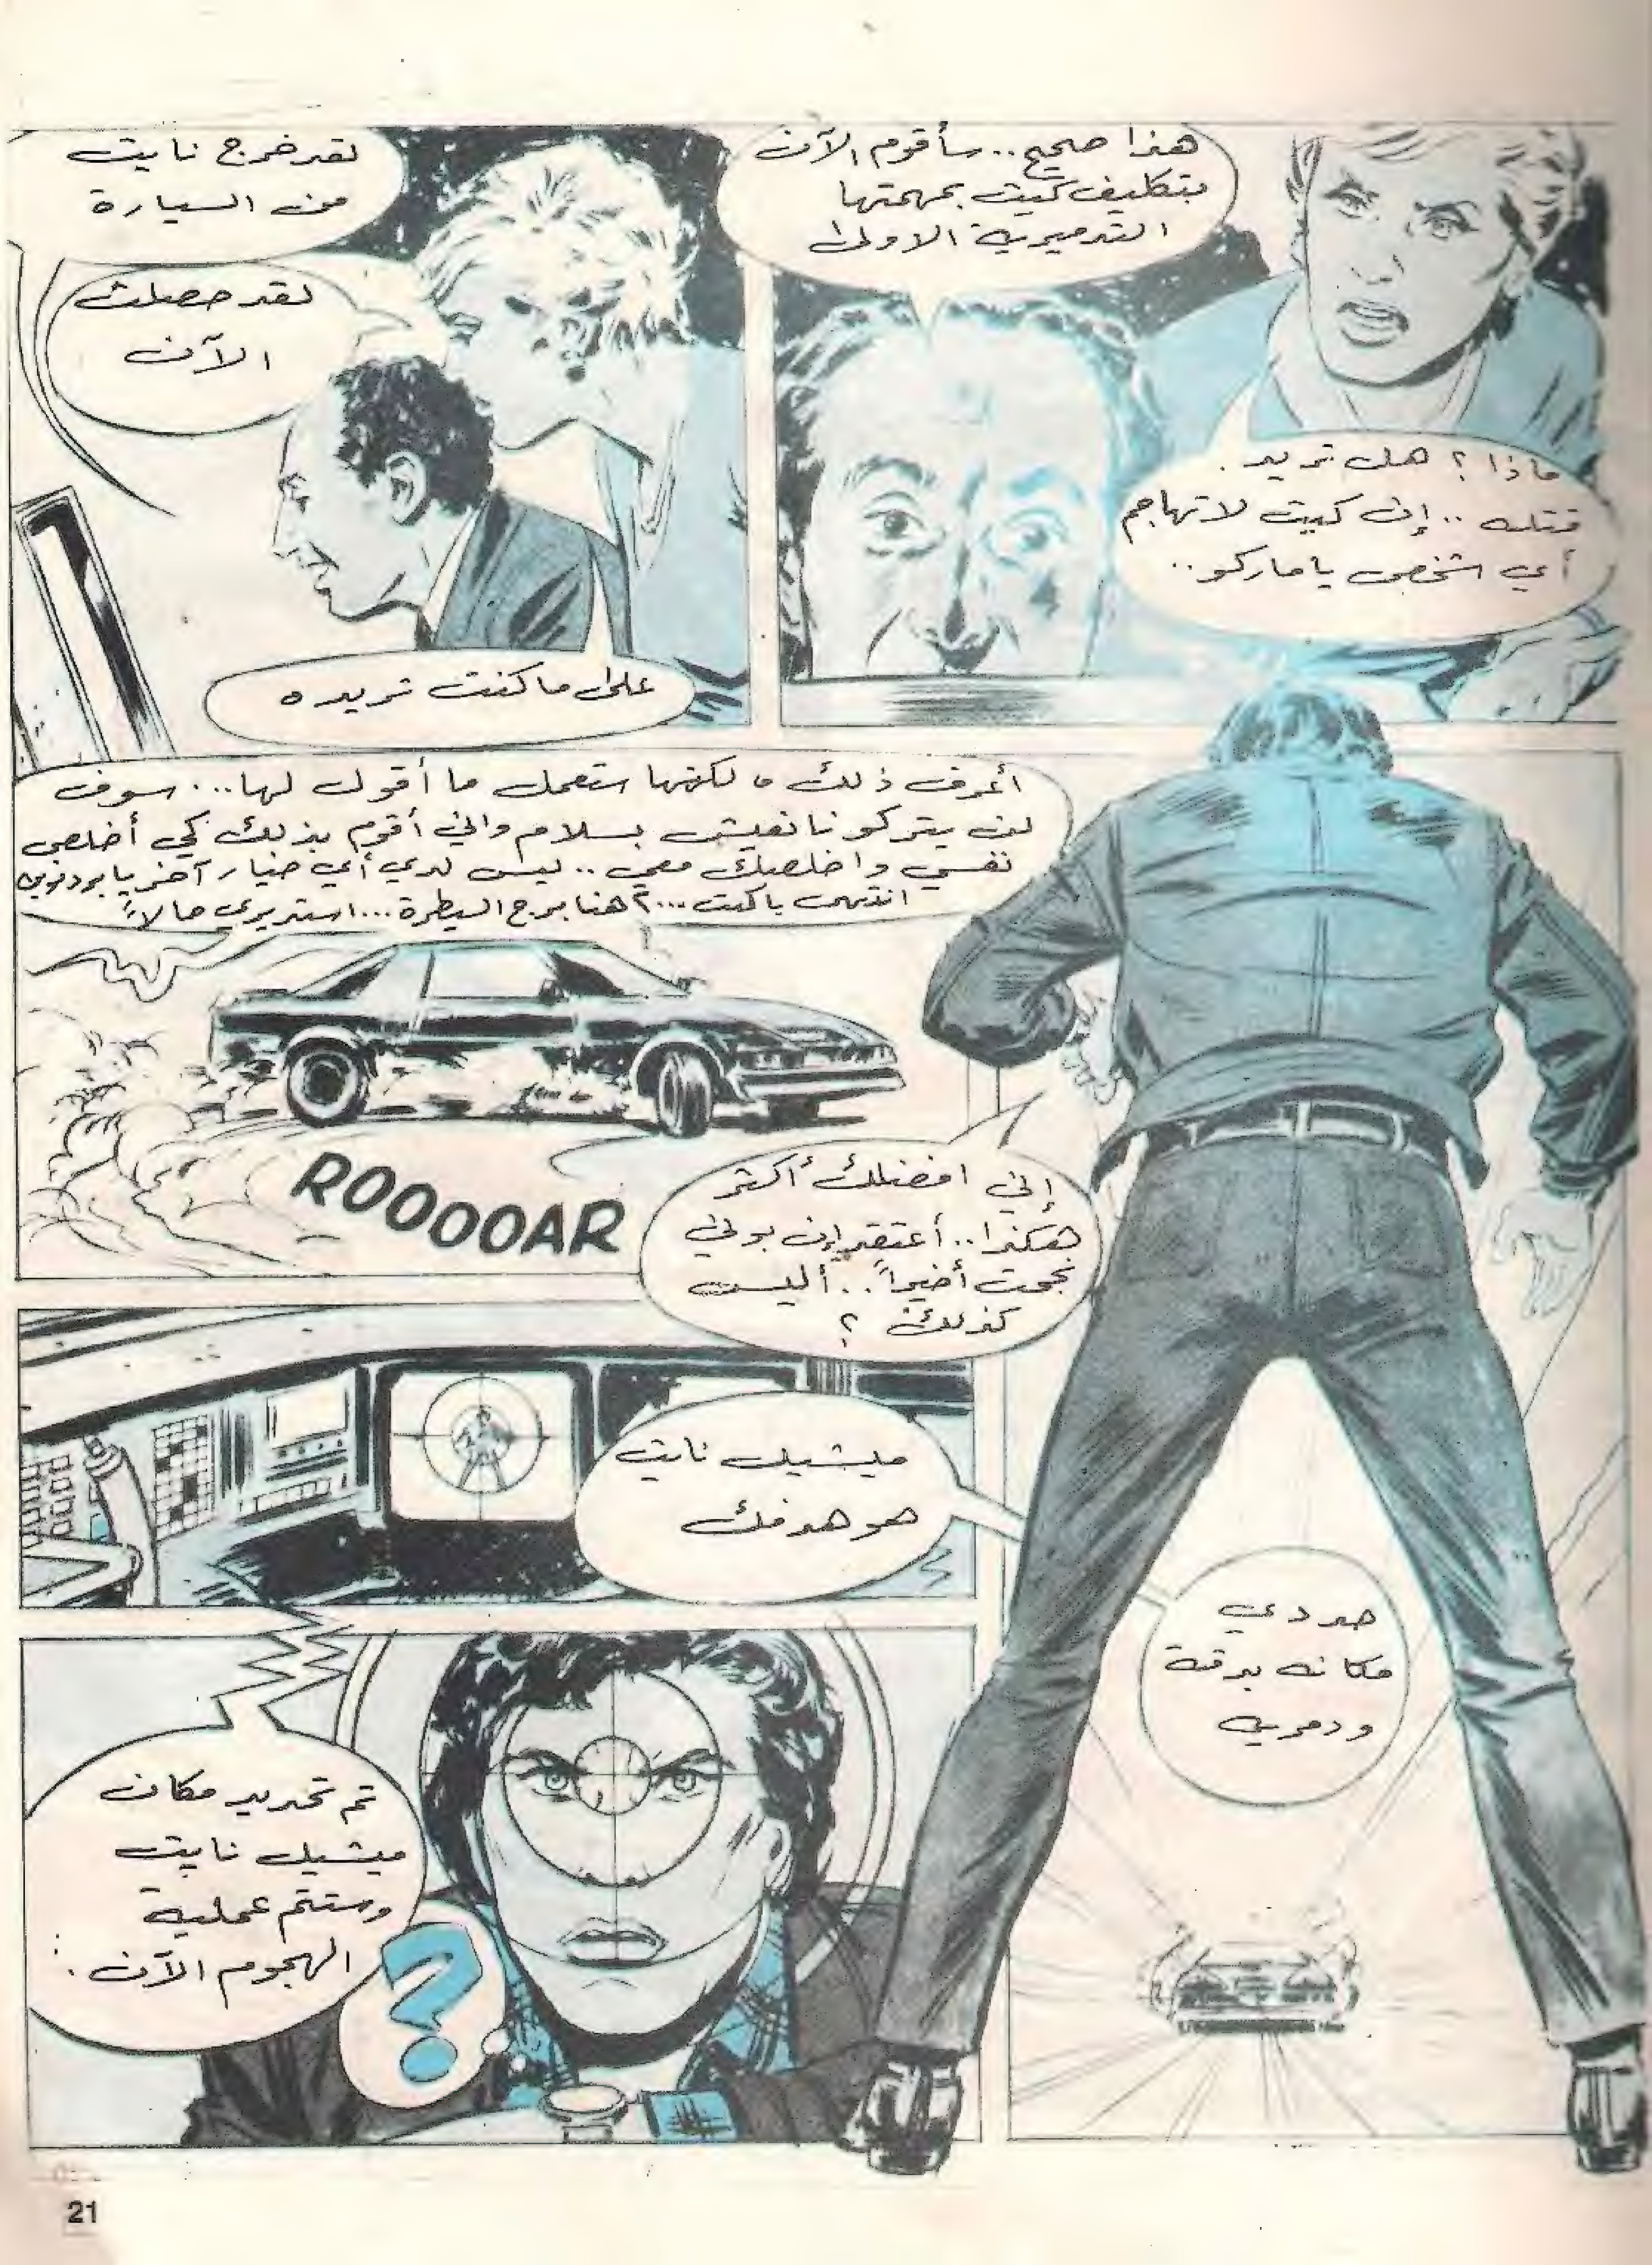 هذا صحيح.. سأقوم الآن
بتكليف كيت بمهمتها
التدميرية الاولى
ماذا؟ هل تريد
قتله .. إن كيت لا تهاجم
أي شخص يا ماركو..
لقد خرج نايت
من السيارة
لقد حصلت
الآن
على ما كنت تريده
أعرف ذلك ولكنها ستعمل ما أقول لها... سوف
لن يتركونا نعيش بسلام واني أقوم بذلك كي أخلص
نفسي واخلصك معي .. ليس لدي أي خيار آخر يا
انتهى يا كيت ...؟ هنا برج السيطرة... استديري حالاً
ROOOOAR
إني افضلك أكثر
هكذا.. أعتقد إن بوني
نجحت أخيراً.. أليس
كذلك ؟
ميشيل نايت
هو هدفك
حددي
مكانه بدقة
ودمري
تم تحديد مكان
ميشيل نايت
وستتم عملية
الهجوم الآن :
?
21